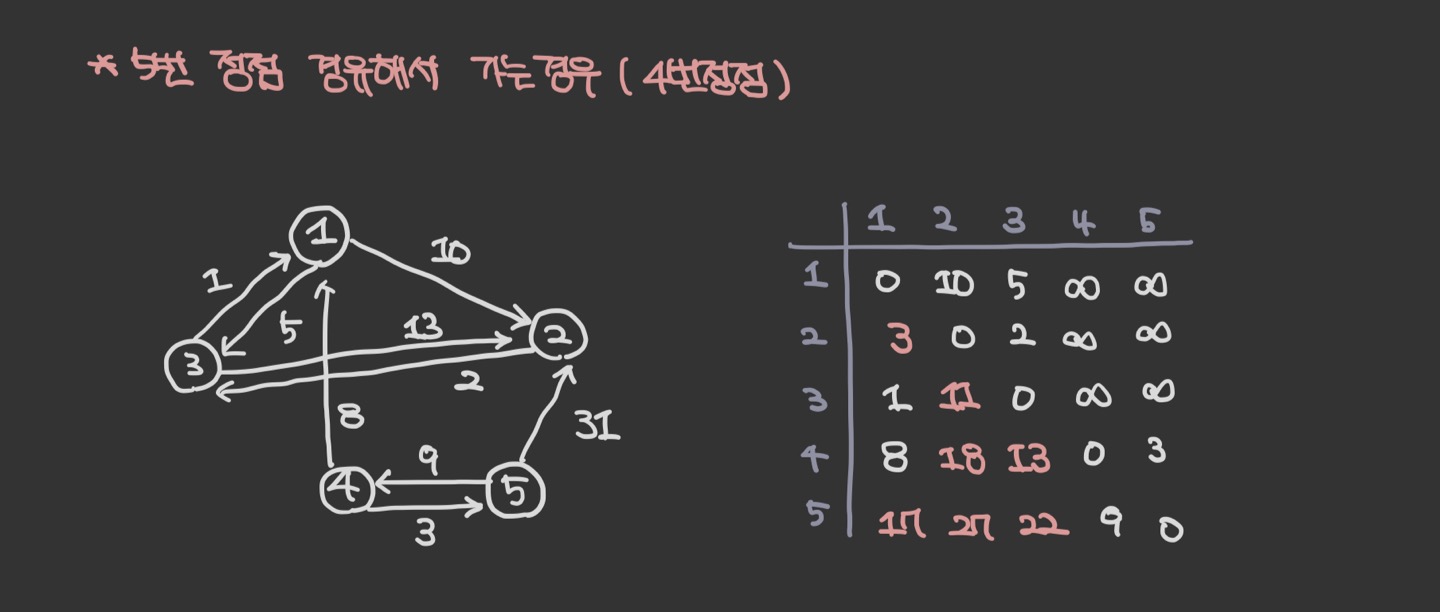 * 5번 정점 경유해서 가는경우 (4번정점)
1
10
1
5
13
2
3
2
8
31
9
4
5
3
1 2 3 4 5
1 0 10 5 ∞ ∞
2 3 0 2 ∞ ∞
3 1 11 0 ∞ ∞
4 8 18 13 0 3
5 17 27 22 9 0